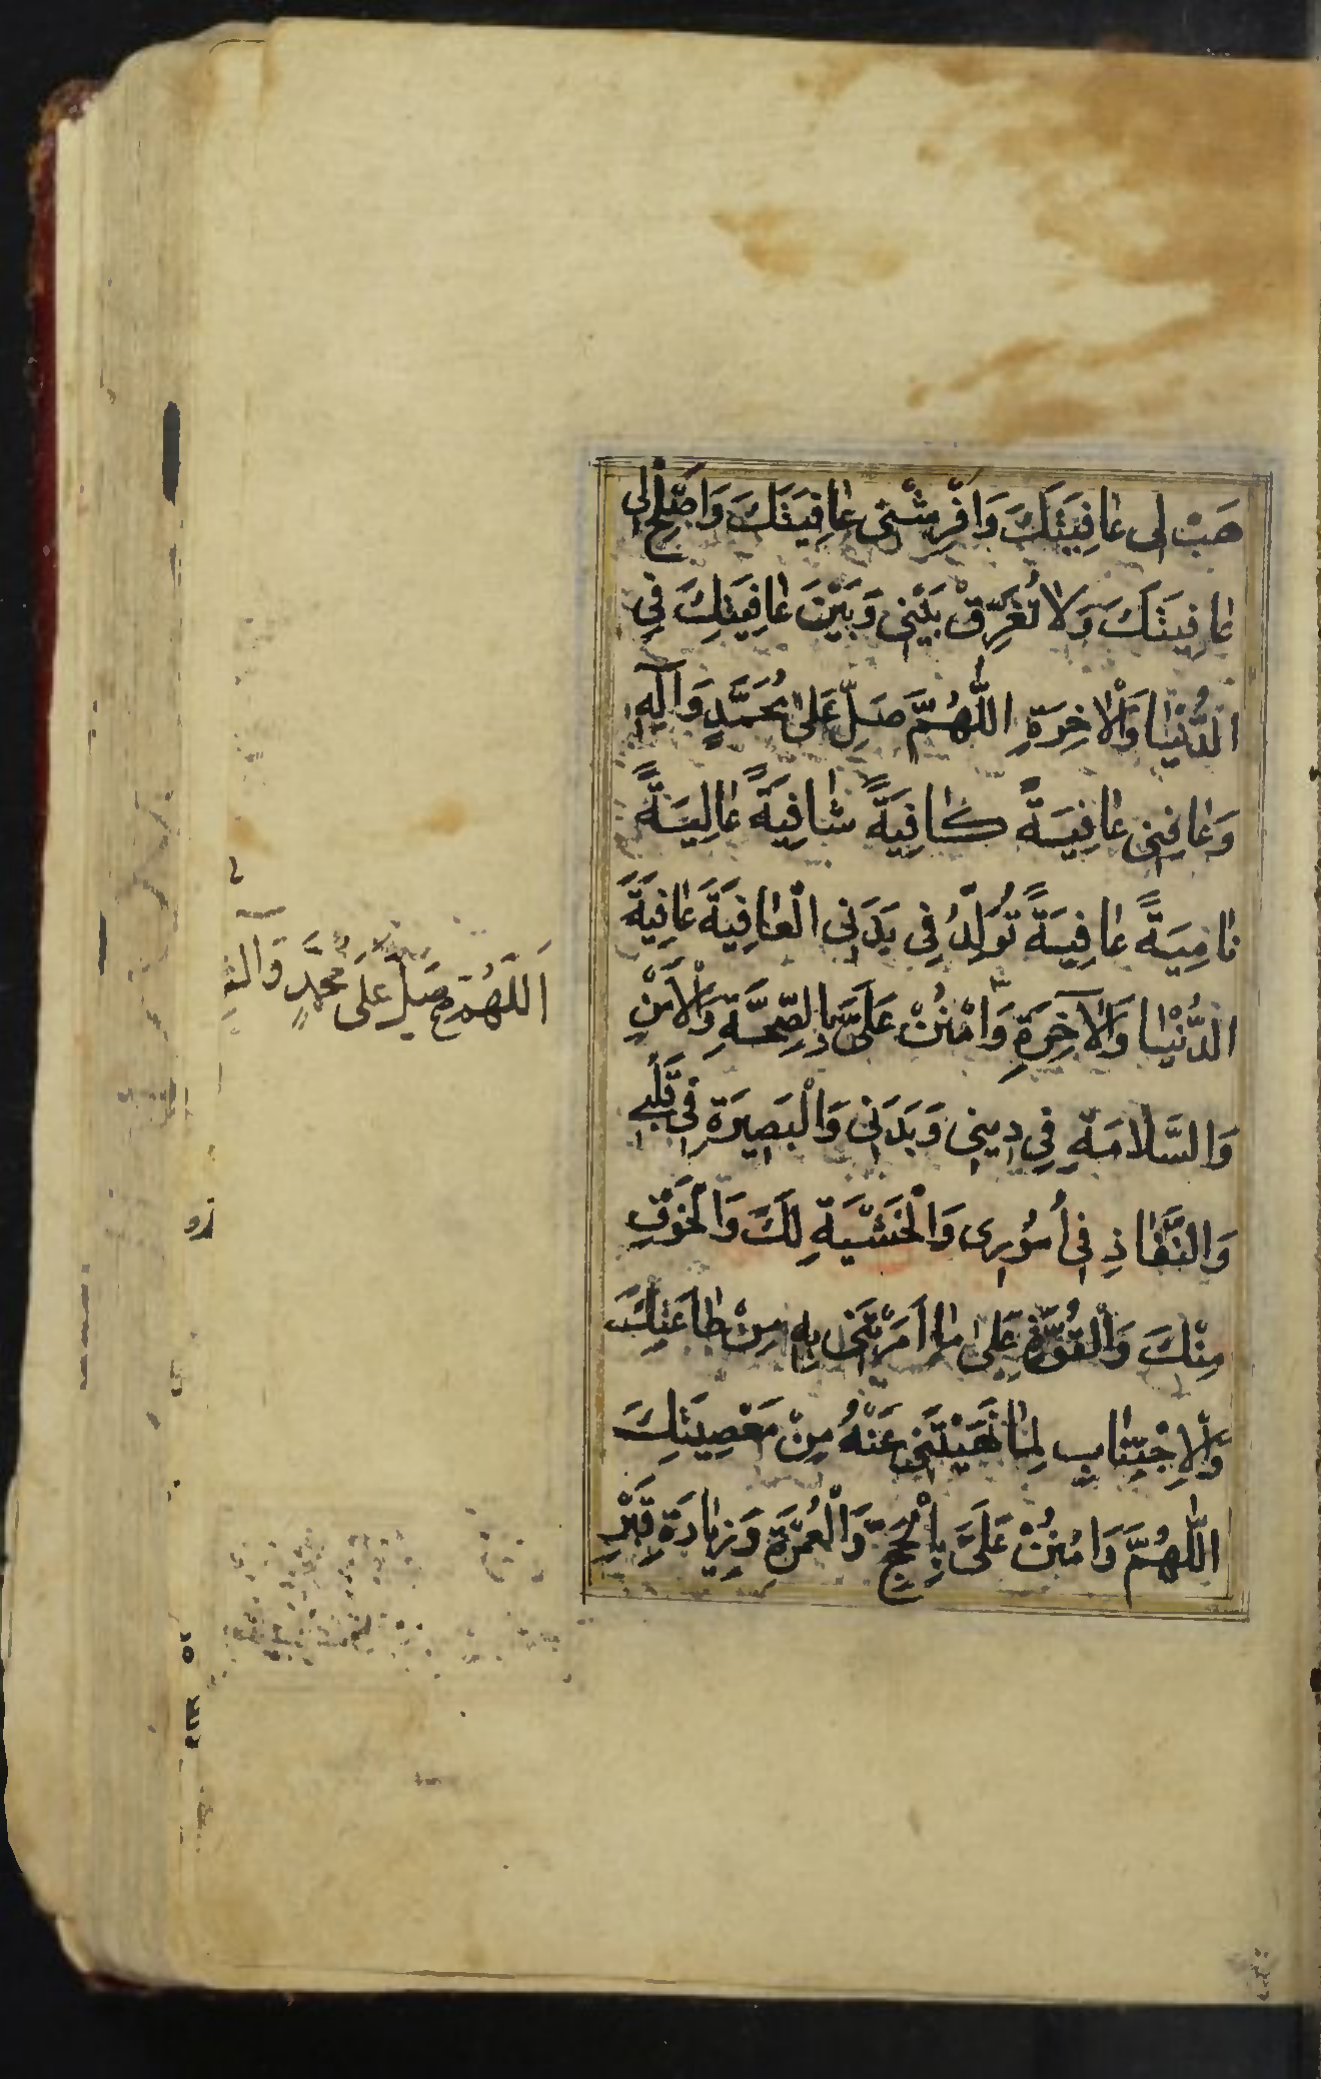 هَبْ لى عافِيَتَكَ وَاَفْرِشْنى عافِيَتَكَ وَاَصْلِحْ لى
عافِيَتَكَ وَلا تُفَرِّقْ بَيْنى وَبَيْنَ عافِيَتِكَ فِى
الدُّنْيا وَالْاخِرَةِ اللّٰهُمَّ صَلِّ عَلىٰ مُحَمَّدٍ وَآلِهِ
وَعافِنى عافِيَةً كافِيَةً شافِيَةً عالِيَةً
نامِيَةً عافِيَةً تُوَلِّدُ فِى بَدَنِى الْعافِيَةَ عافِيَةَ
الدُّنْيا وَالآخِرَةِ وَامْنُنْ عَلَىَّ بِالصِّحَّةِ وَالْاَمْنِ
وَالسَّلامَةِ فِى دِينِى وَبَدَنِى وَالْبَصِيرَةِ فِى قَلْبِى
وَالنَّفاذِ فِى اُمُورِى وَالْخَشْيَةِ لَكَ وَالْخَوْفِ
مِنْكَ وَالْقُوَّةِ عَلىٰ ما اَمَرْتَنِى بِهِ مِنْ طاعَتِكَ
وَالْاِجْتِنابِ لِما نَهَيْتَنِى عَنْهُ مِنْ مَعْصِيَتِكَ
اللّٰهُمَّ وَامْنُنْ عَلَىَّ بِالْحَجِّ وَالْعُمْرَةِ وَزِيارَةِ قَبْرِ
اَللّٰهُمَّ صَلِّ عَلىٰ مُحَمَّدٍ